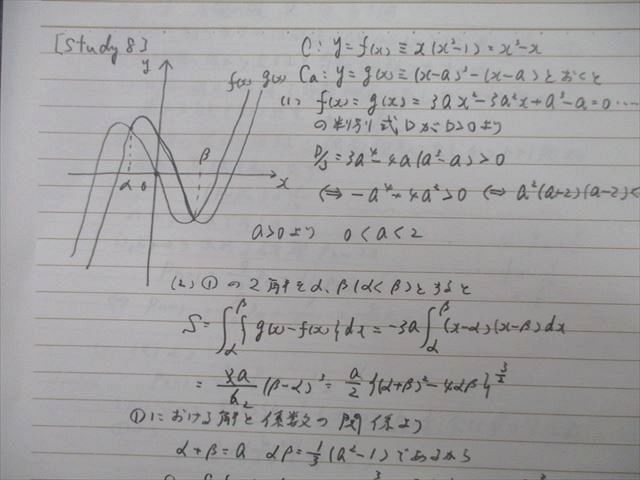 [Study 8]
C: y = f(x) ≡ x(x²-1) = x³-x
Ca: y = g(x) ≡ (x-a)³-(x-a) とおくと
(1) f(x) = g(x) = 3ax²-3a²x+a³-a=0 …
の判別式DがD>0より
D/3 = 3a⁴-4a(a³-a)>0
⇔ -a⁴+4a²>0 ⇔ a²(a+2)(a-2)<
a>0より 0<a<2
y f(x) g(x)
α 0 β x
(2) ①の2解をα、β(α<β)とすると
S = ∫_α^β {g(x)-f(x)}dx = -3a∫_α^β (x-α)(x-β)dx
= 3a/6 2 (β-α)³ = a/2 {(α+β)²-4αβ}^{3/2}
①における解と係数の関係より
α+β=a αβ=1/3(a²-1)であるから